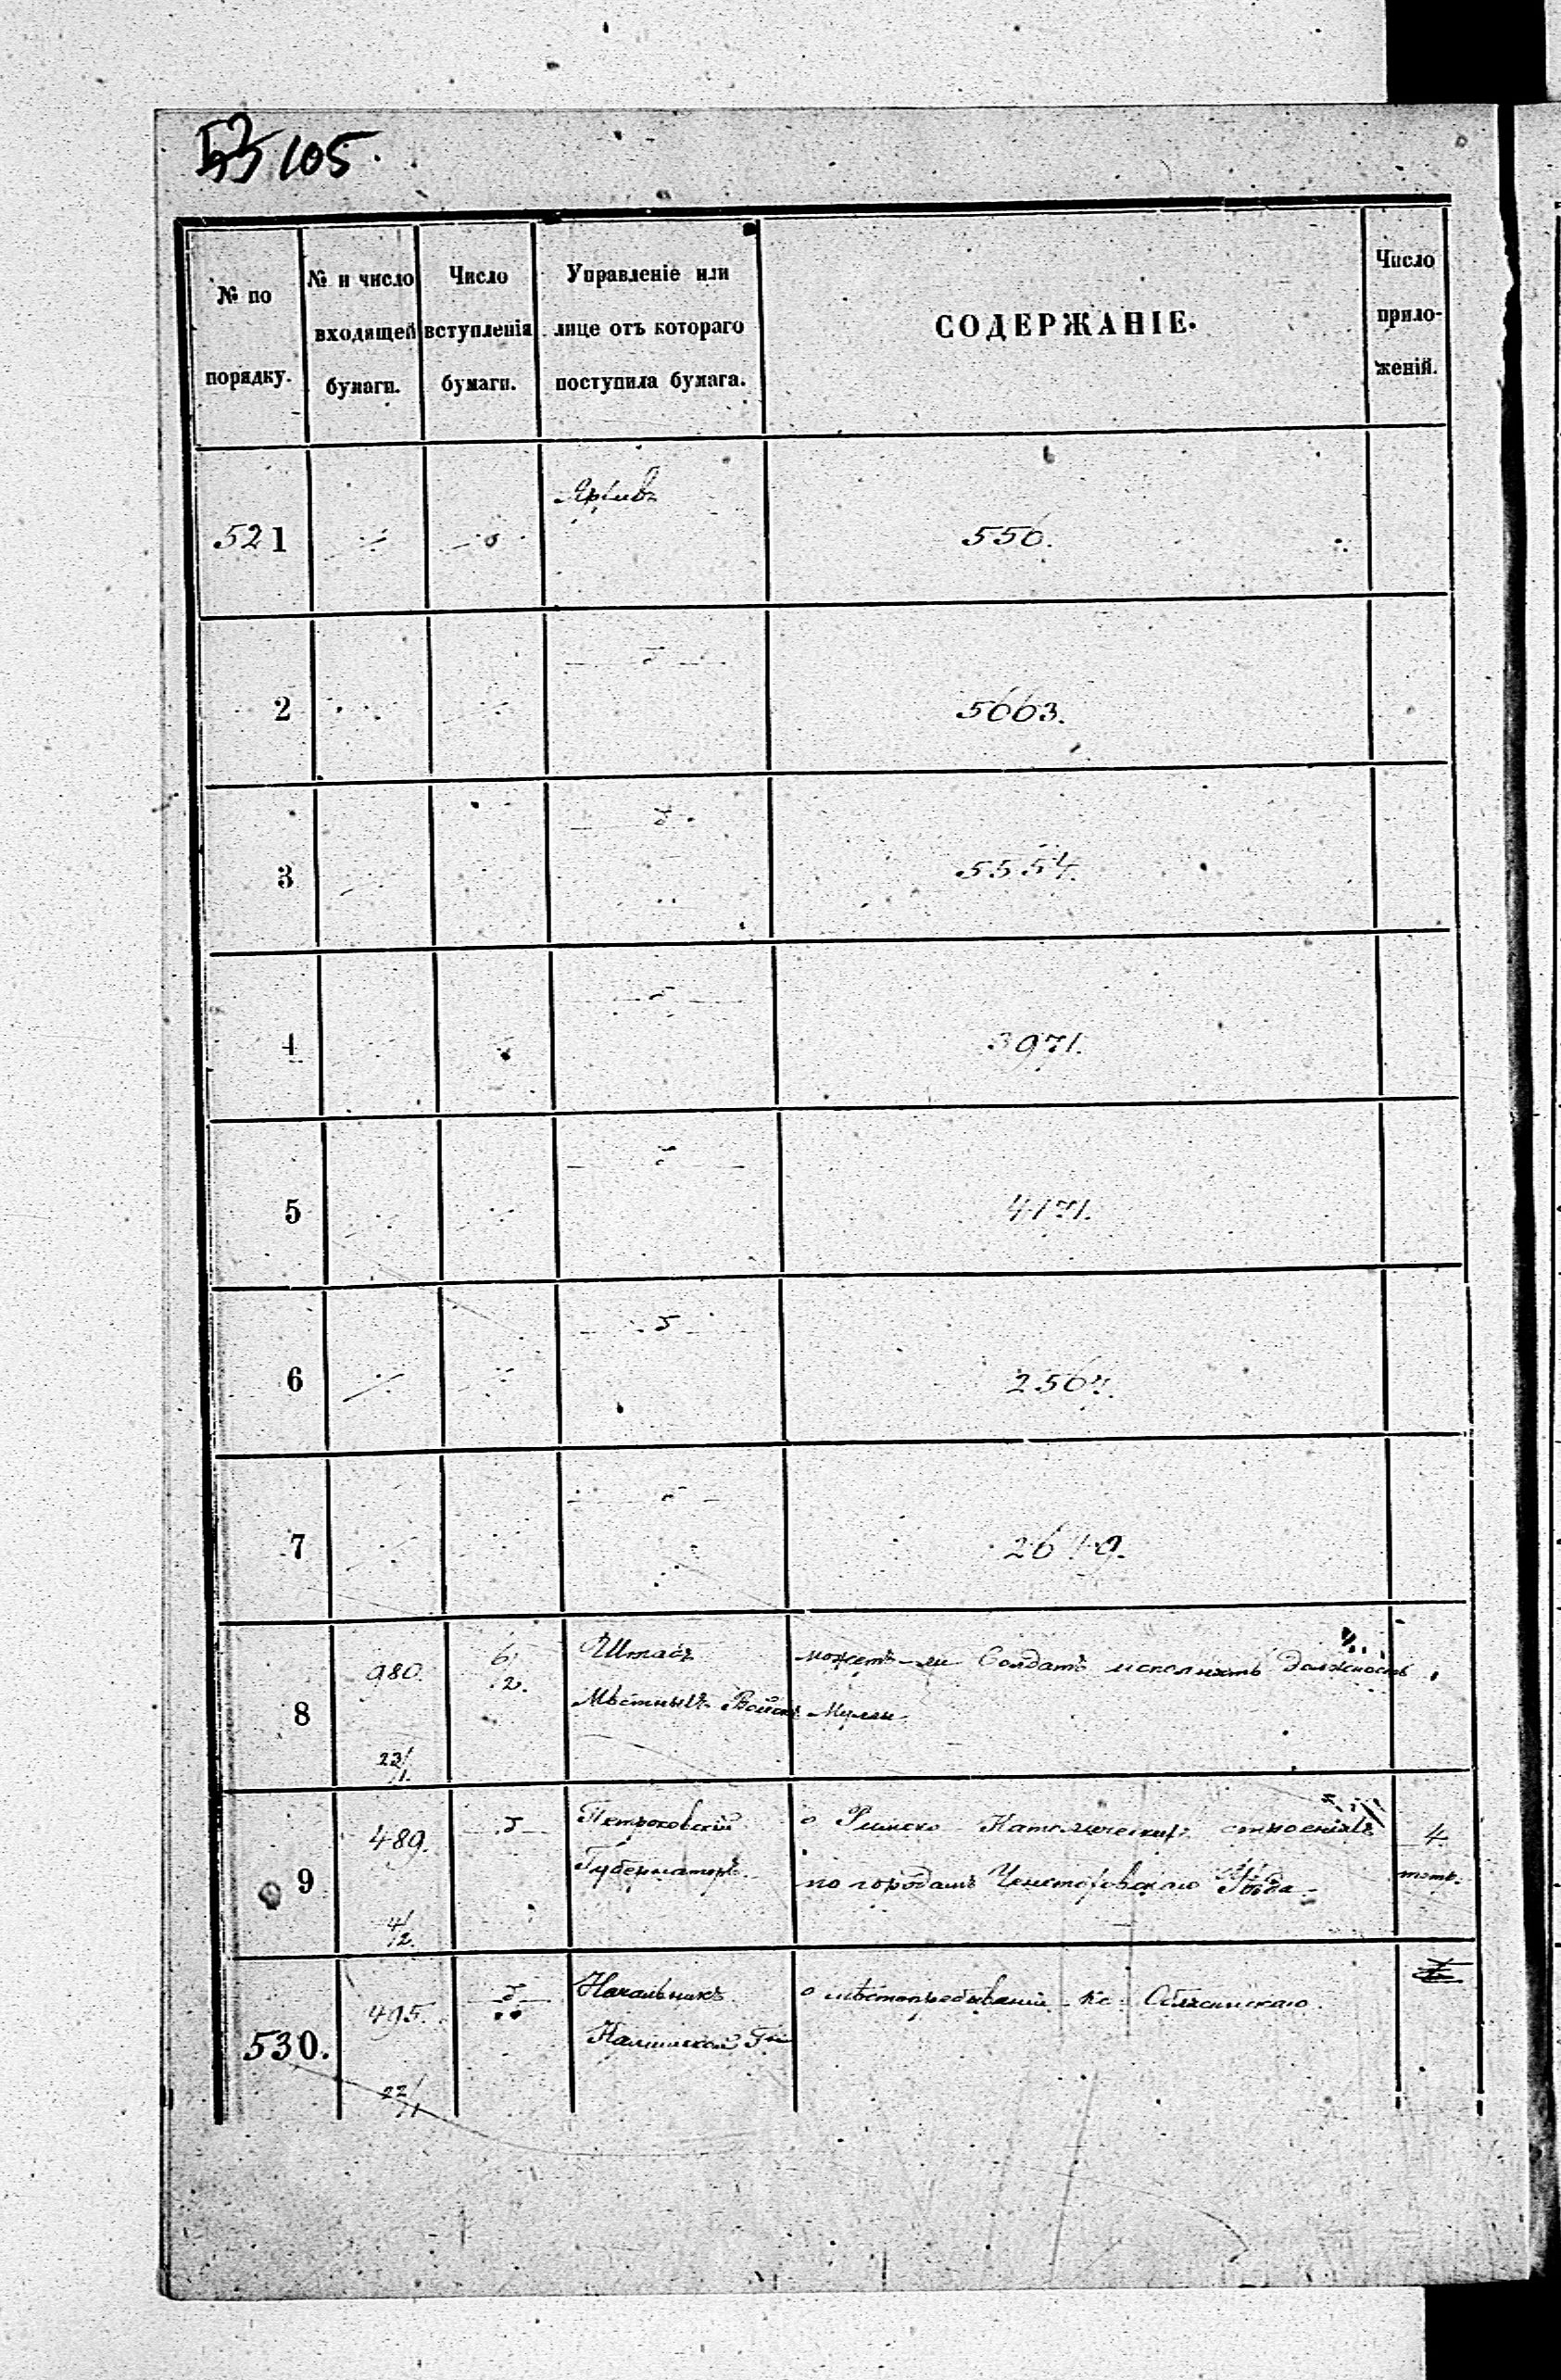 105.
№ по порядку.
№ и число входящей бумаги.
Число вступленія бумаги.
Управленіе или лице отъ котораго поступила бумага.
СОДЕРЖАНІЕ.
Число приложеній.
521 Архивъ 556.
2 5663.
3 5554.
4 3971.
5 4171.
6
7
8 980. 23/1. 6/2. Штабъ
Мѣстныхъ Войскъ
можетъ-ли Солдатъ исполнять должность
Муллы
9 489. 4/2. Петроковскій
Губернаторъ.
о Римско Католическихъ строеніяхъ
по городамъ Ченстоховскаго Уѣзда 4
530. 495. 22/1 Начальникъ
Калишской Гу
о мѣстопребываніи Кс.